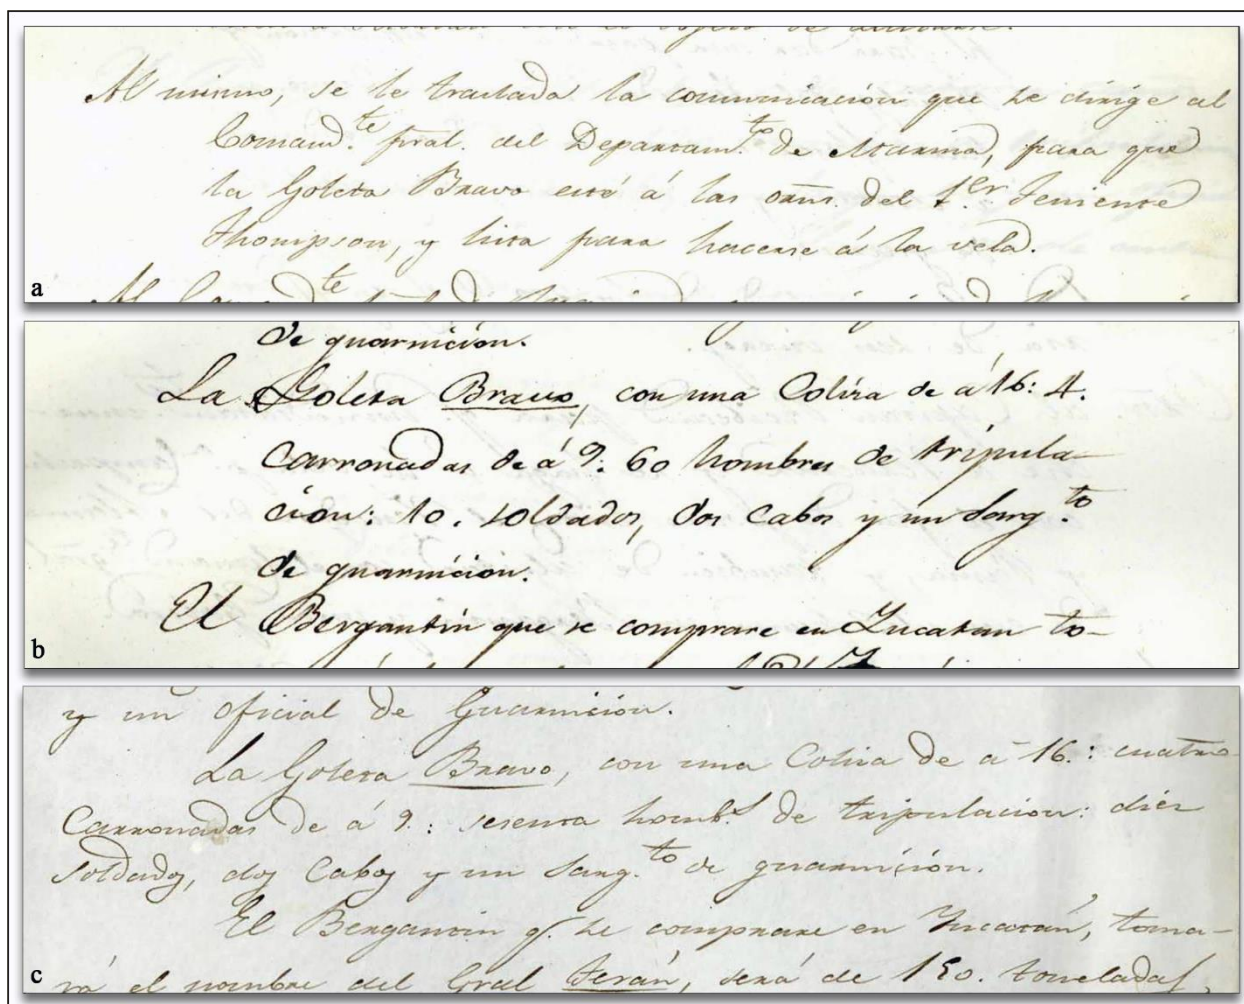 Al mismo, se le traslada la comunicación que se dirige al
Comand.te pral. del Departam.to de Marina, para que
la Goleta Bravo esté á las orns. del 1.er Teniente
Thompson, y lista para hacerse á la vela.
a
de guarnición.
La Goleta Bravo, con una Coliza de á 16: 4.
Carronadas de á 9: 60 hombres de tripula-
ción: 10. soldados, dos Cabos y un Sarg.to
de guarnición.
El Bergantin que se comprare en Yucatan to-
b
y un oficial de Guarnicion.
La Goleta Bravo, con una Coliza de á 16.: cuatro
Carronadas de á 9.: sesenta homb.s de tripulacion: diez
soldados, dos Cabos y un Sarg.to de guarnición.
El Bergantin q. se comprare en Yucatán, toma-
rá el nombre del Gral Terán, será de 150. toneladas,
c